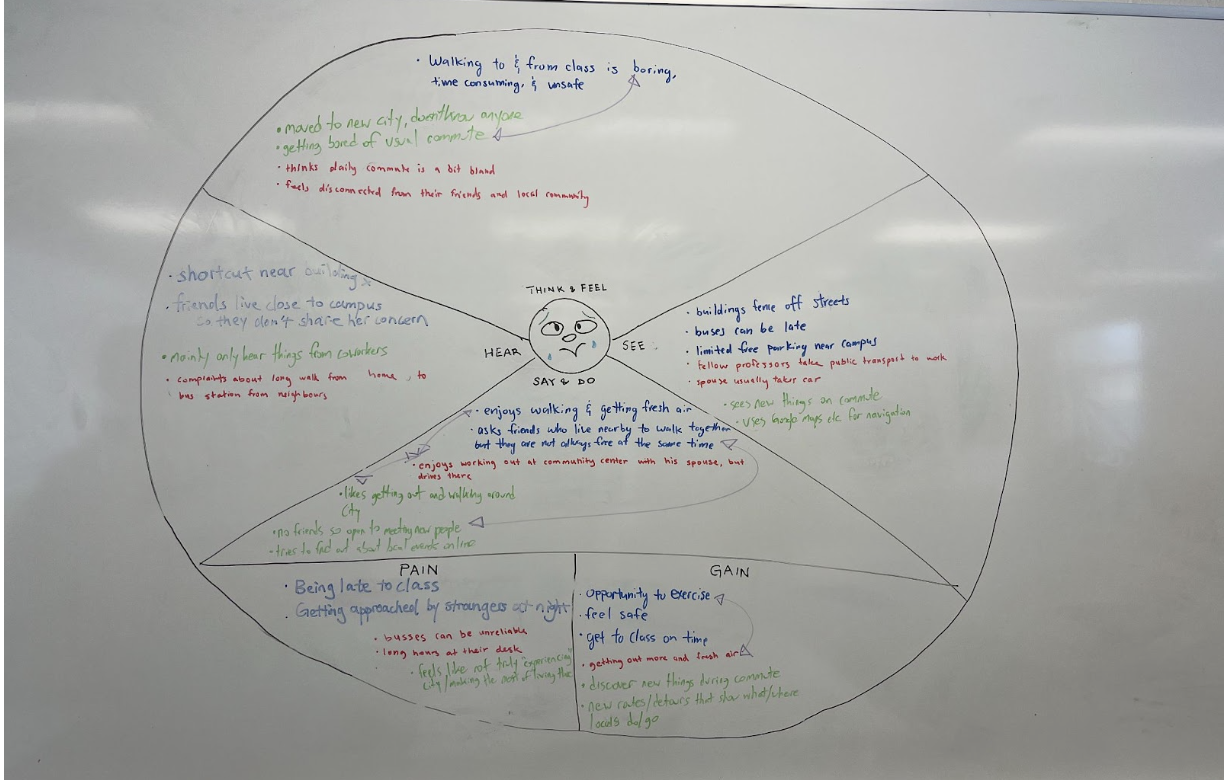 • Walking to & from class is boring,
time consuming, & unsafe
• moved to new city, doesn't know anyone
• getting bored of usual commute
• thinks daily commute is a bit bland
• feels disconnected from their friends and local community
THINK & FEEL
HEAR
SEE
SAY & DO
• shortcut near building
• friends live close to campus
so they don't share her concern
• Mainly only hear things from coworkers
• complaints about long walk from home, to
bus station from neighbours
• buildings fence off streets
• buses can be late
• limited free parking near campus
• fellow professors take public transport to work
• spouse usually takes car
• sees new things on commute
• uses Google Maps etc. for navigation
• enjoys walking & getting fresh air
• asks friends who live nearby to walk together
but they are not always free at the same time
• enjoys working out at community center with his spouse, but
drives there
• likes getting out and walking around
city
• no friends so open to meeting new people
• tries to find out about local events online
PAIN
• Being late to class
• Getting approached by strangers at night
• busses can be unreliable
• long hours at their desk
• feels like not truly "experiencing"
city/making the most of living there
GAIN
• Opportunity to exercise
• feel safe
• get to class on time
• getting out more and fresh air
• discover new things during commute
• new routes/detours that show what/where
locals do/go